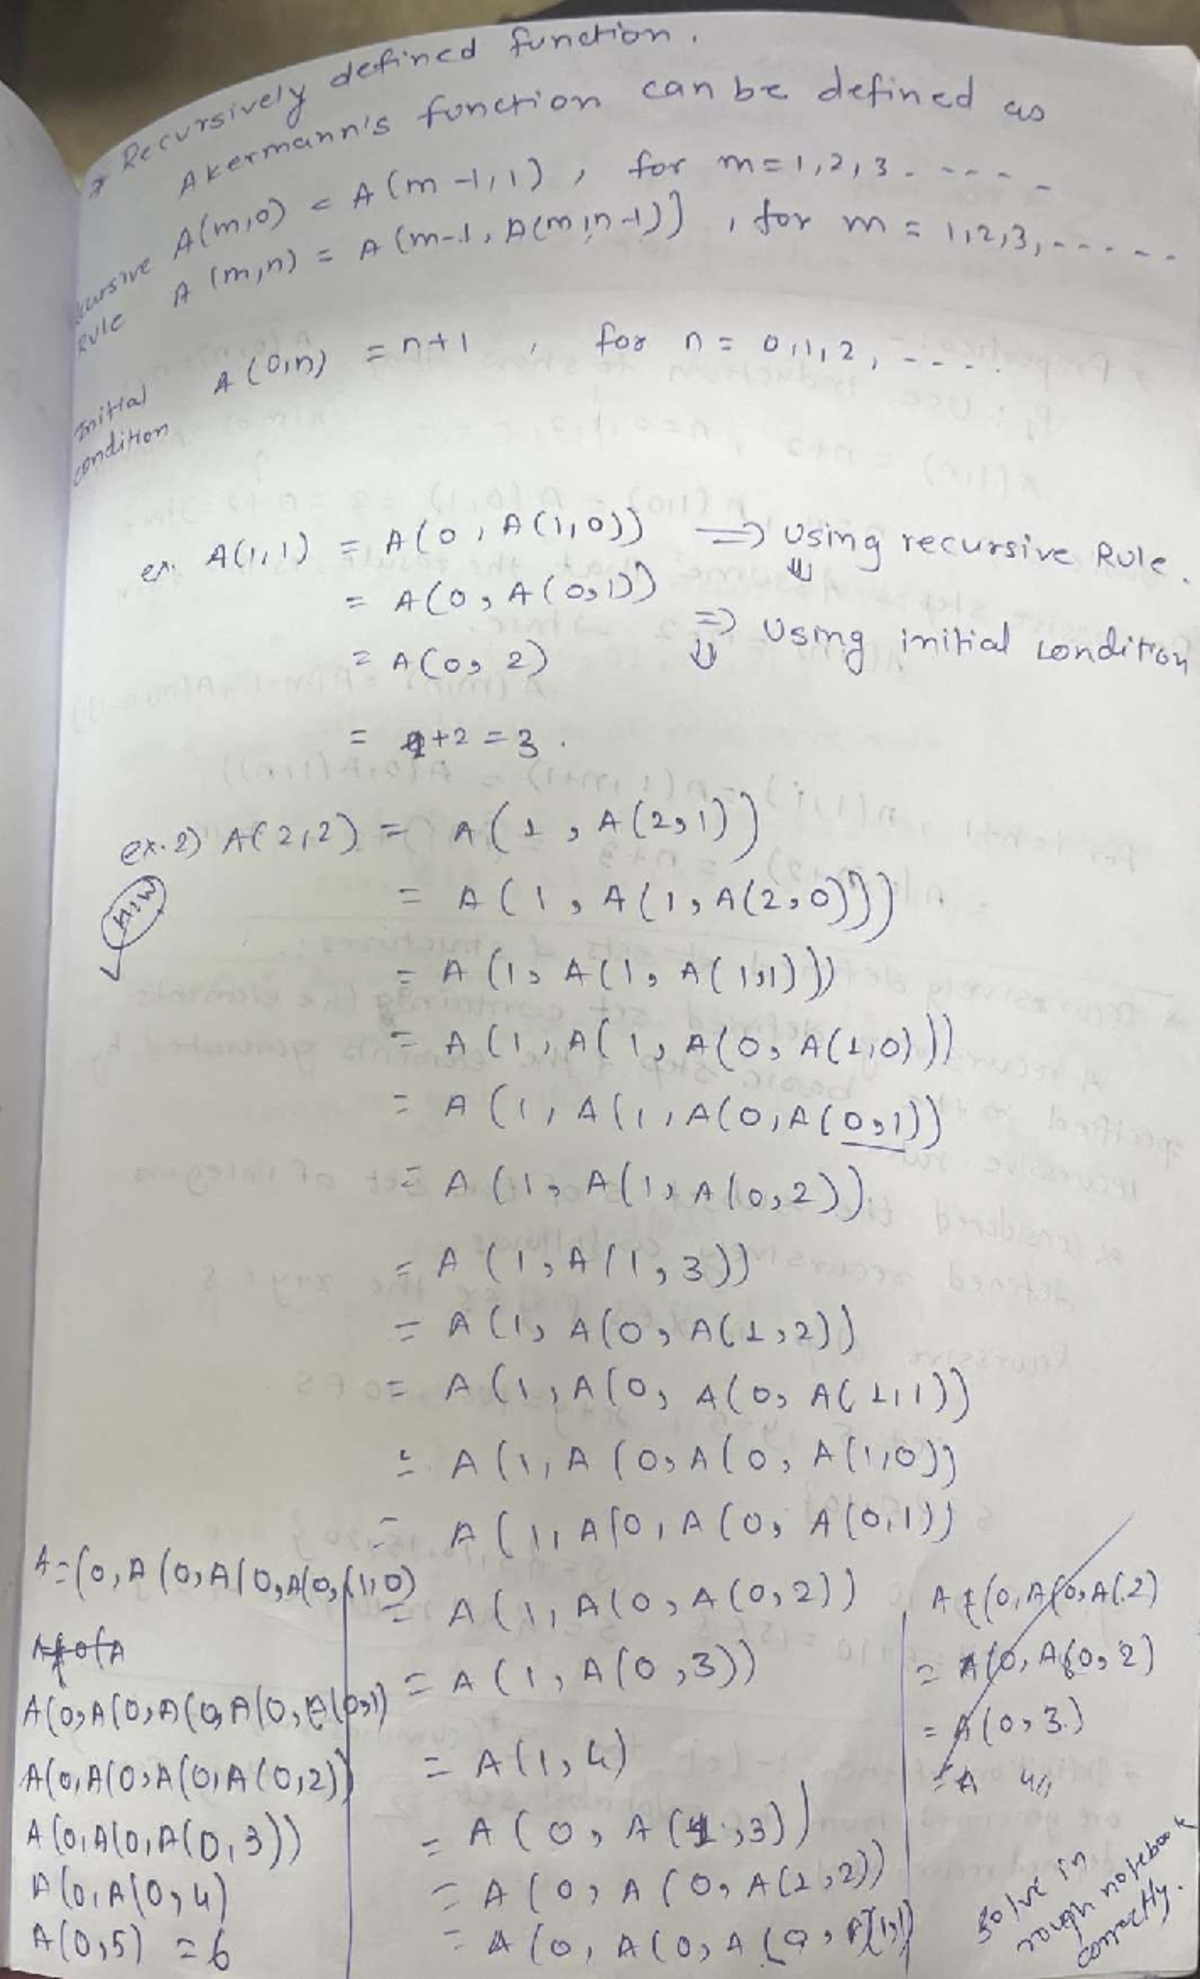 * Recursively defined function.
Akermann's function can be defined as
Recursive Rule
A(m,0) = A(m-1,1), for m=1,2,3-----
A(m,n) = A(m-1, A(m,n-1)], for m = 1,2,3,-----
Initial condition
A(0,n) = n+1, for n = 0,1,2,----.
ex. A(1,1) = A(0, A(1,0)) ⇒ Using recursive Rule.
= A(0, A(0,1)) ⇓
= A(0, 2) ⇒ Using initial condition
⇓
= 1+2 = 3.
ex.2) A(2,2) = A(1, A(2,1))
H.W
= A(1, A(1, A(2,0)))
= A(1, A(1, A(1,1)))
= A(1, A(1, A(0, A(1,0)))
= A(1, A(1, A(0, A(0,1))
= A(1, A(1, A(0,2))
= A(1, A(1, 3))
= A(1, A(0, A(1,2))
= A(1, A(0, A(0, A(1,1))
= A(1, A(0, A(0, A(1,0))
= A(1, A(0, A(0, A(0,1))
= A(1, A(0, A(0,2))
= A(1, A(0,3))
= A(1,4)
= A(0, A(1,3))
= A(0, A(0, A(1,2))
= A(0, A(0, A(0, A(1,1)
A=(0, A(0, A(0, A(0, (1,0)
A(0, A(0, A(0, A(0, A(0,1)
A(0, A(0, A(0, A(0,2))
A(0, A(0, A(0,3))
A(0, A(0,4)
A(0,5) = 6
A(0, A(0, A(.2)
= A(0, A(0,2)
= A(0,3)
= A 4
Solve in
rough notebook
correctly.